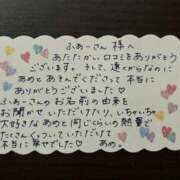 ふあーさん 様へ
あたたかい口コミをありがとう
ございます。そして、遠くからなのに
あのと あそんでくださって 本当に
ありがとうございました♡
ふあーさんのお名前の由来を
お聞かせいただけたり、いちゃいちゃ
大好きな あのと同じくらいの熱量で
たくさんくっついていただけて
本当に幸せでした♡ あの。